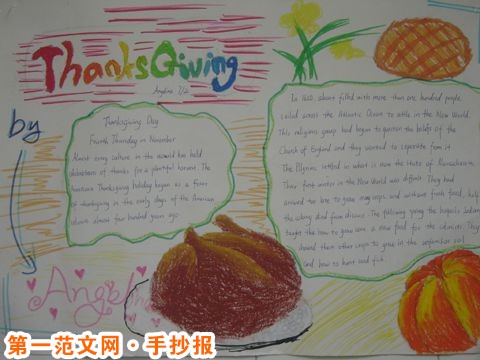 ThanksGiving
Angelina 7/2
by
Thanksgiving Day
Fourth Thursday in November
Almost every culture in the world has held
celebrations of thanks for a plentiful harvest. The
American Thanksgiving holiday began as a feast
of thanksgiving in the early days of the American
colonies almost four hundred years ago
In 1620, a boat filled with more than one hundred people
sailed across the Atlantic Ocean to settle in the New World.
This religious group had begun to question the beliefs of the
Church of England and they wanted to separate from it.
The Pilgrims settled in what is now the state of Massachusetts.
Their first winter in the New World was difficult. They had
arrived too late to grow many crops, and without fresh food, half
the colony died from disease. The following spring the Iroquois Indians
taught them how to grow corn a new food for the colonists. They
showed them other crops to grow in the unfamiliar soil
and how to hunt and fish.
第一范文网·手抄报